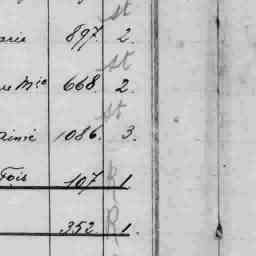 st
arie 897. 2.
st
re Mie 668. 2.
st
Aimé 1086. 3.
Fois 107 1
R
352 1.